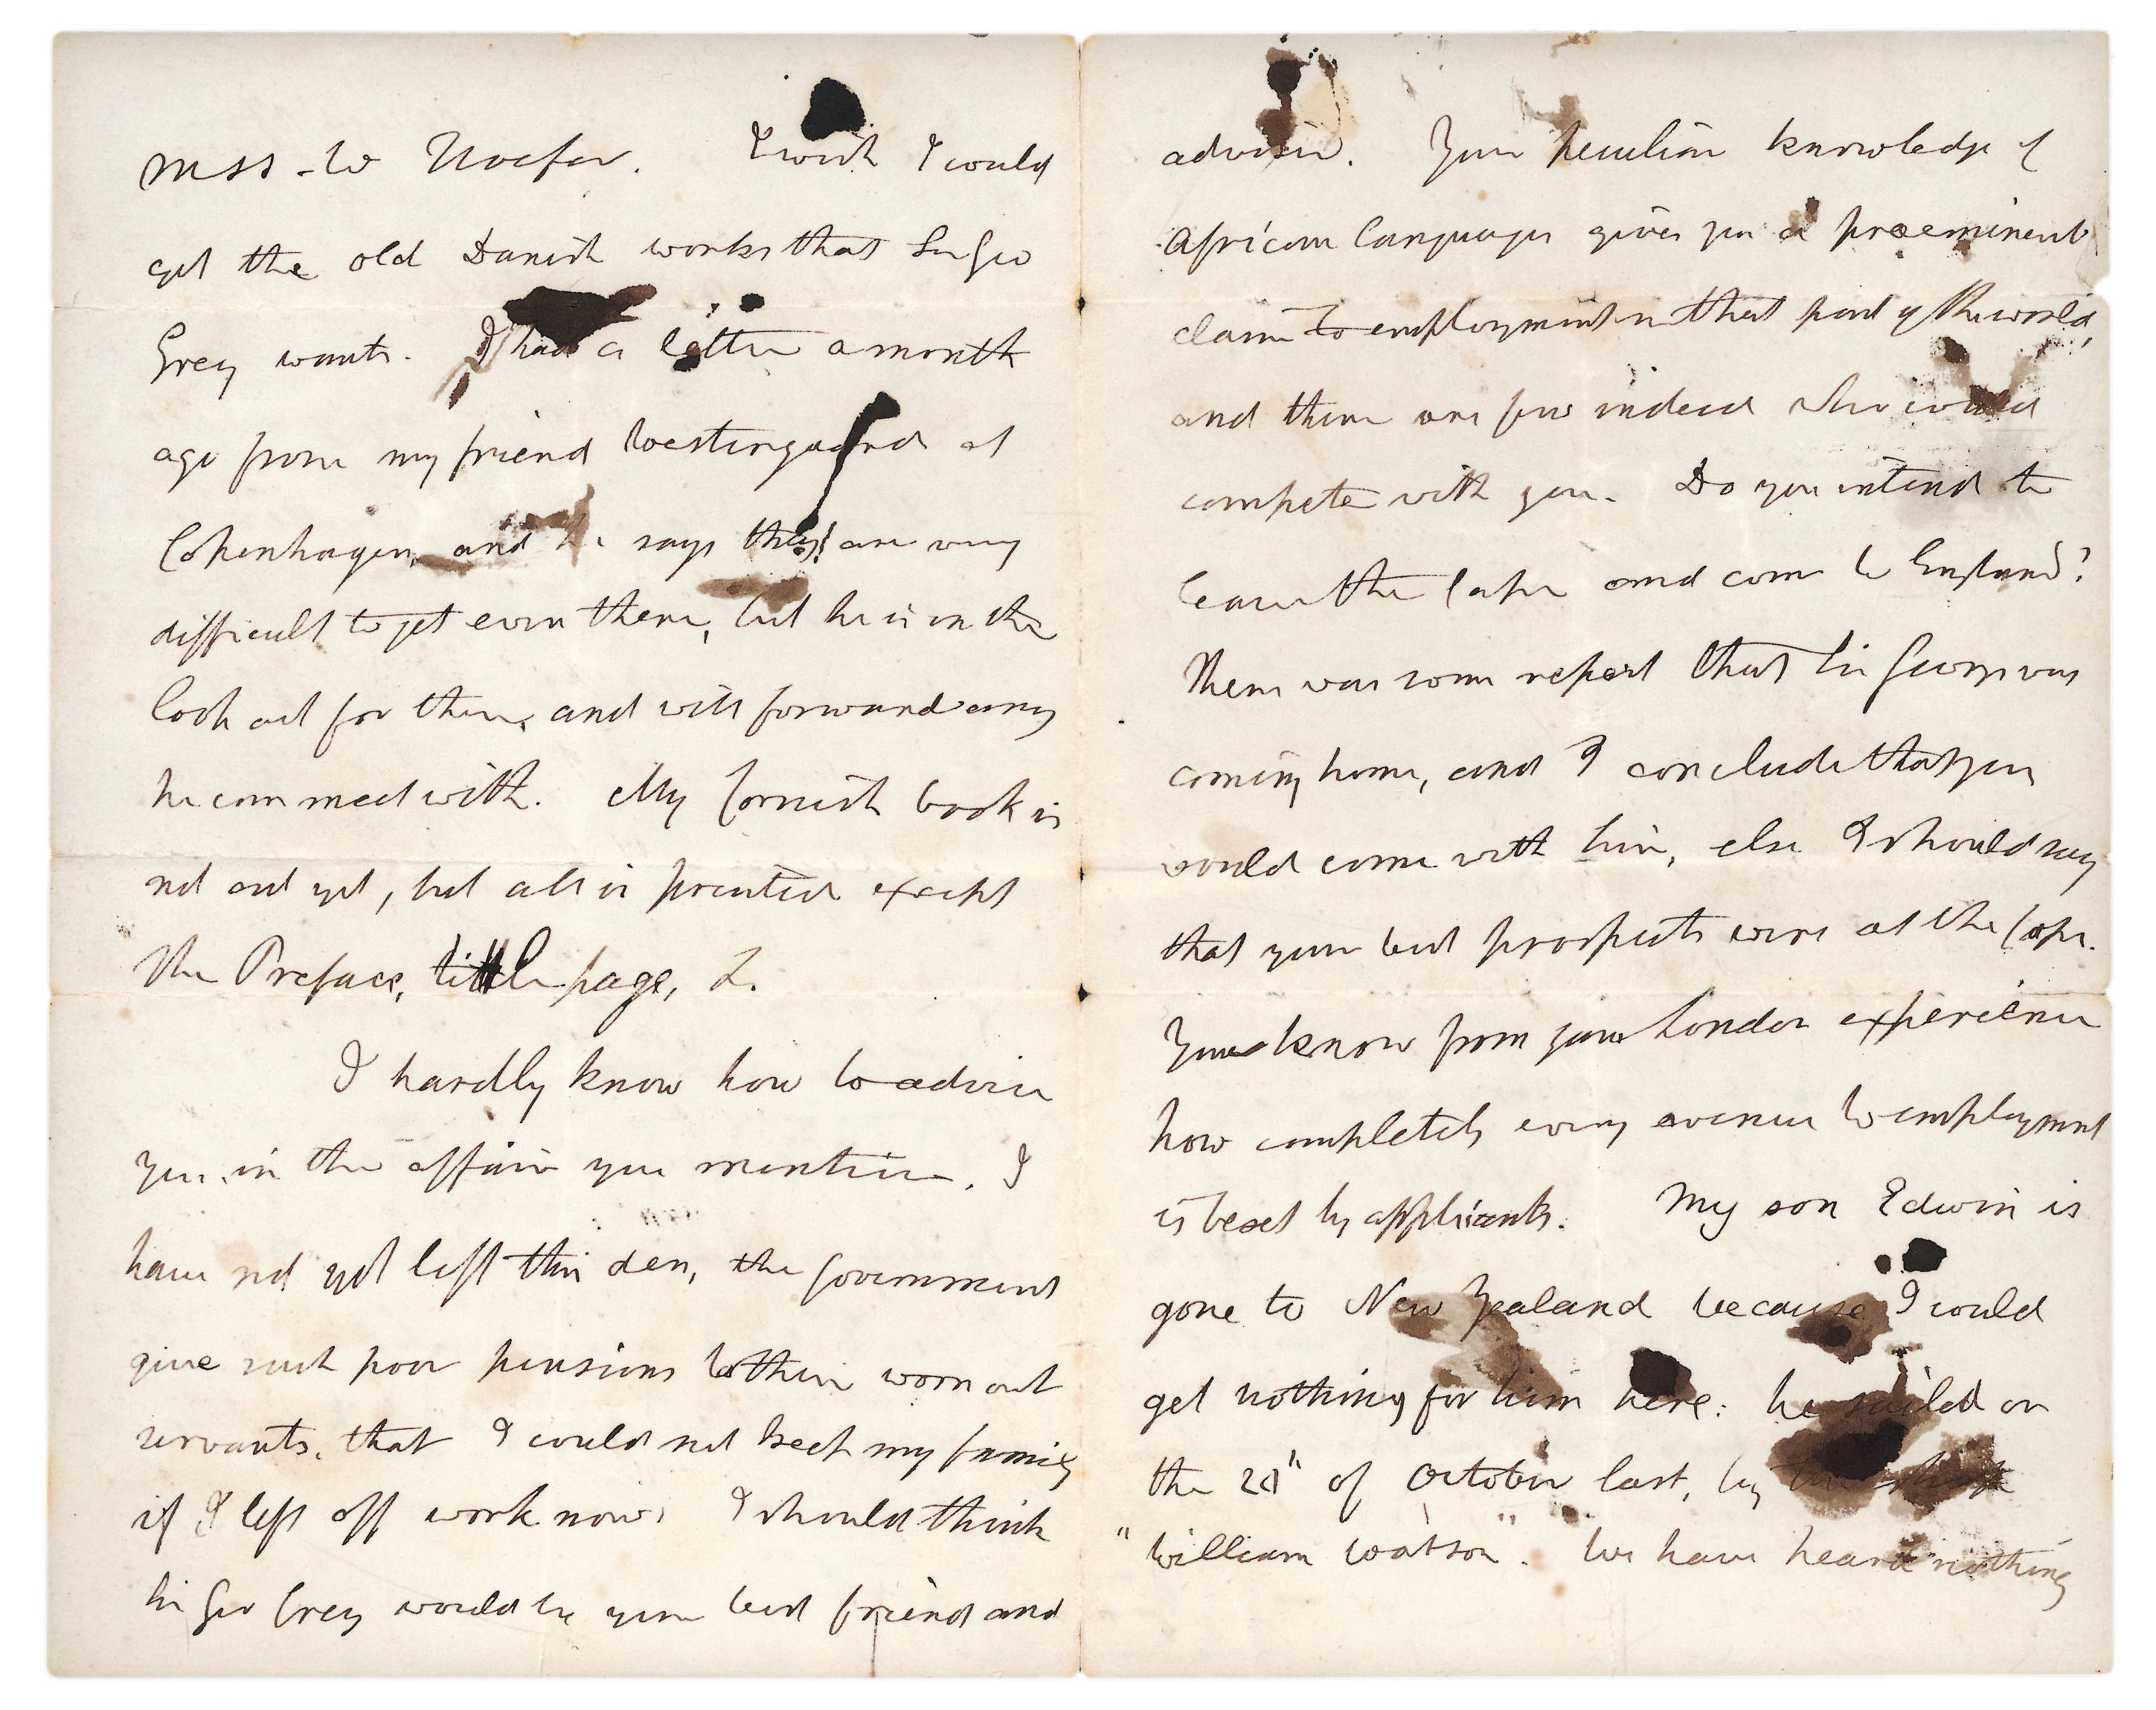 Mss - to Hoefer. I wish I could
get the old Danish works that Sir Geo
Grey wants. I had a letter a month
ago from my friend Westergaard at
Copenhagen, and he says they are very
difficult to get even there, but he is on the
look out for them, and will forward any
he can meet with. My Cornish book is
not out yet, but all is printed except
the Preface, title page, &.
I hardly know how to advise
you in the affair you mention. I
have not yet left this den, the Government
give such poor pensions to their worn out
servants, that I could not keep my family
if I left off work now. I should think
Sir Geo Grey would be your best friend and
adviser. Your peculiar knowledge of
African languages gives you a preeminent
claim to employment in that part of the world,
and there are few indeed who could
compete with you. Do you intend to
leave the Cape and come to England?
There was some report that Sir George was
coming home, and I conclude that you
would come with him, else I should say
that your best prospects were at the Cape.
You know from your London experience
how completely every avenue to employment
is beset by applicants. My son Edwin is
gone to New Zealand because I could
get nothing for him here: he sailed on
the 21" of October last, by the ship
"William Watson". We have heard nothing